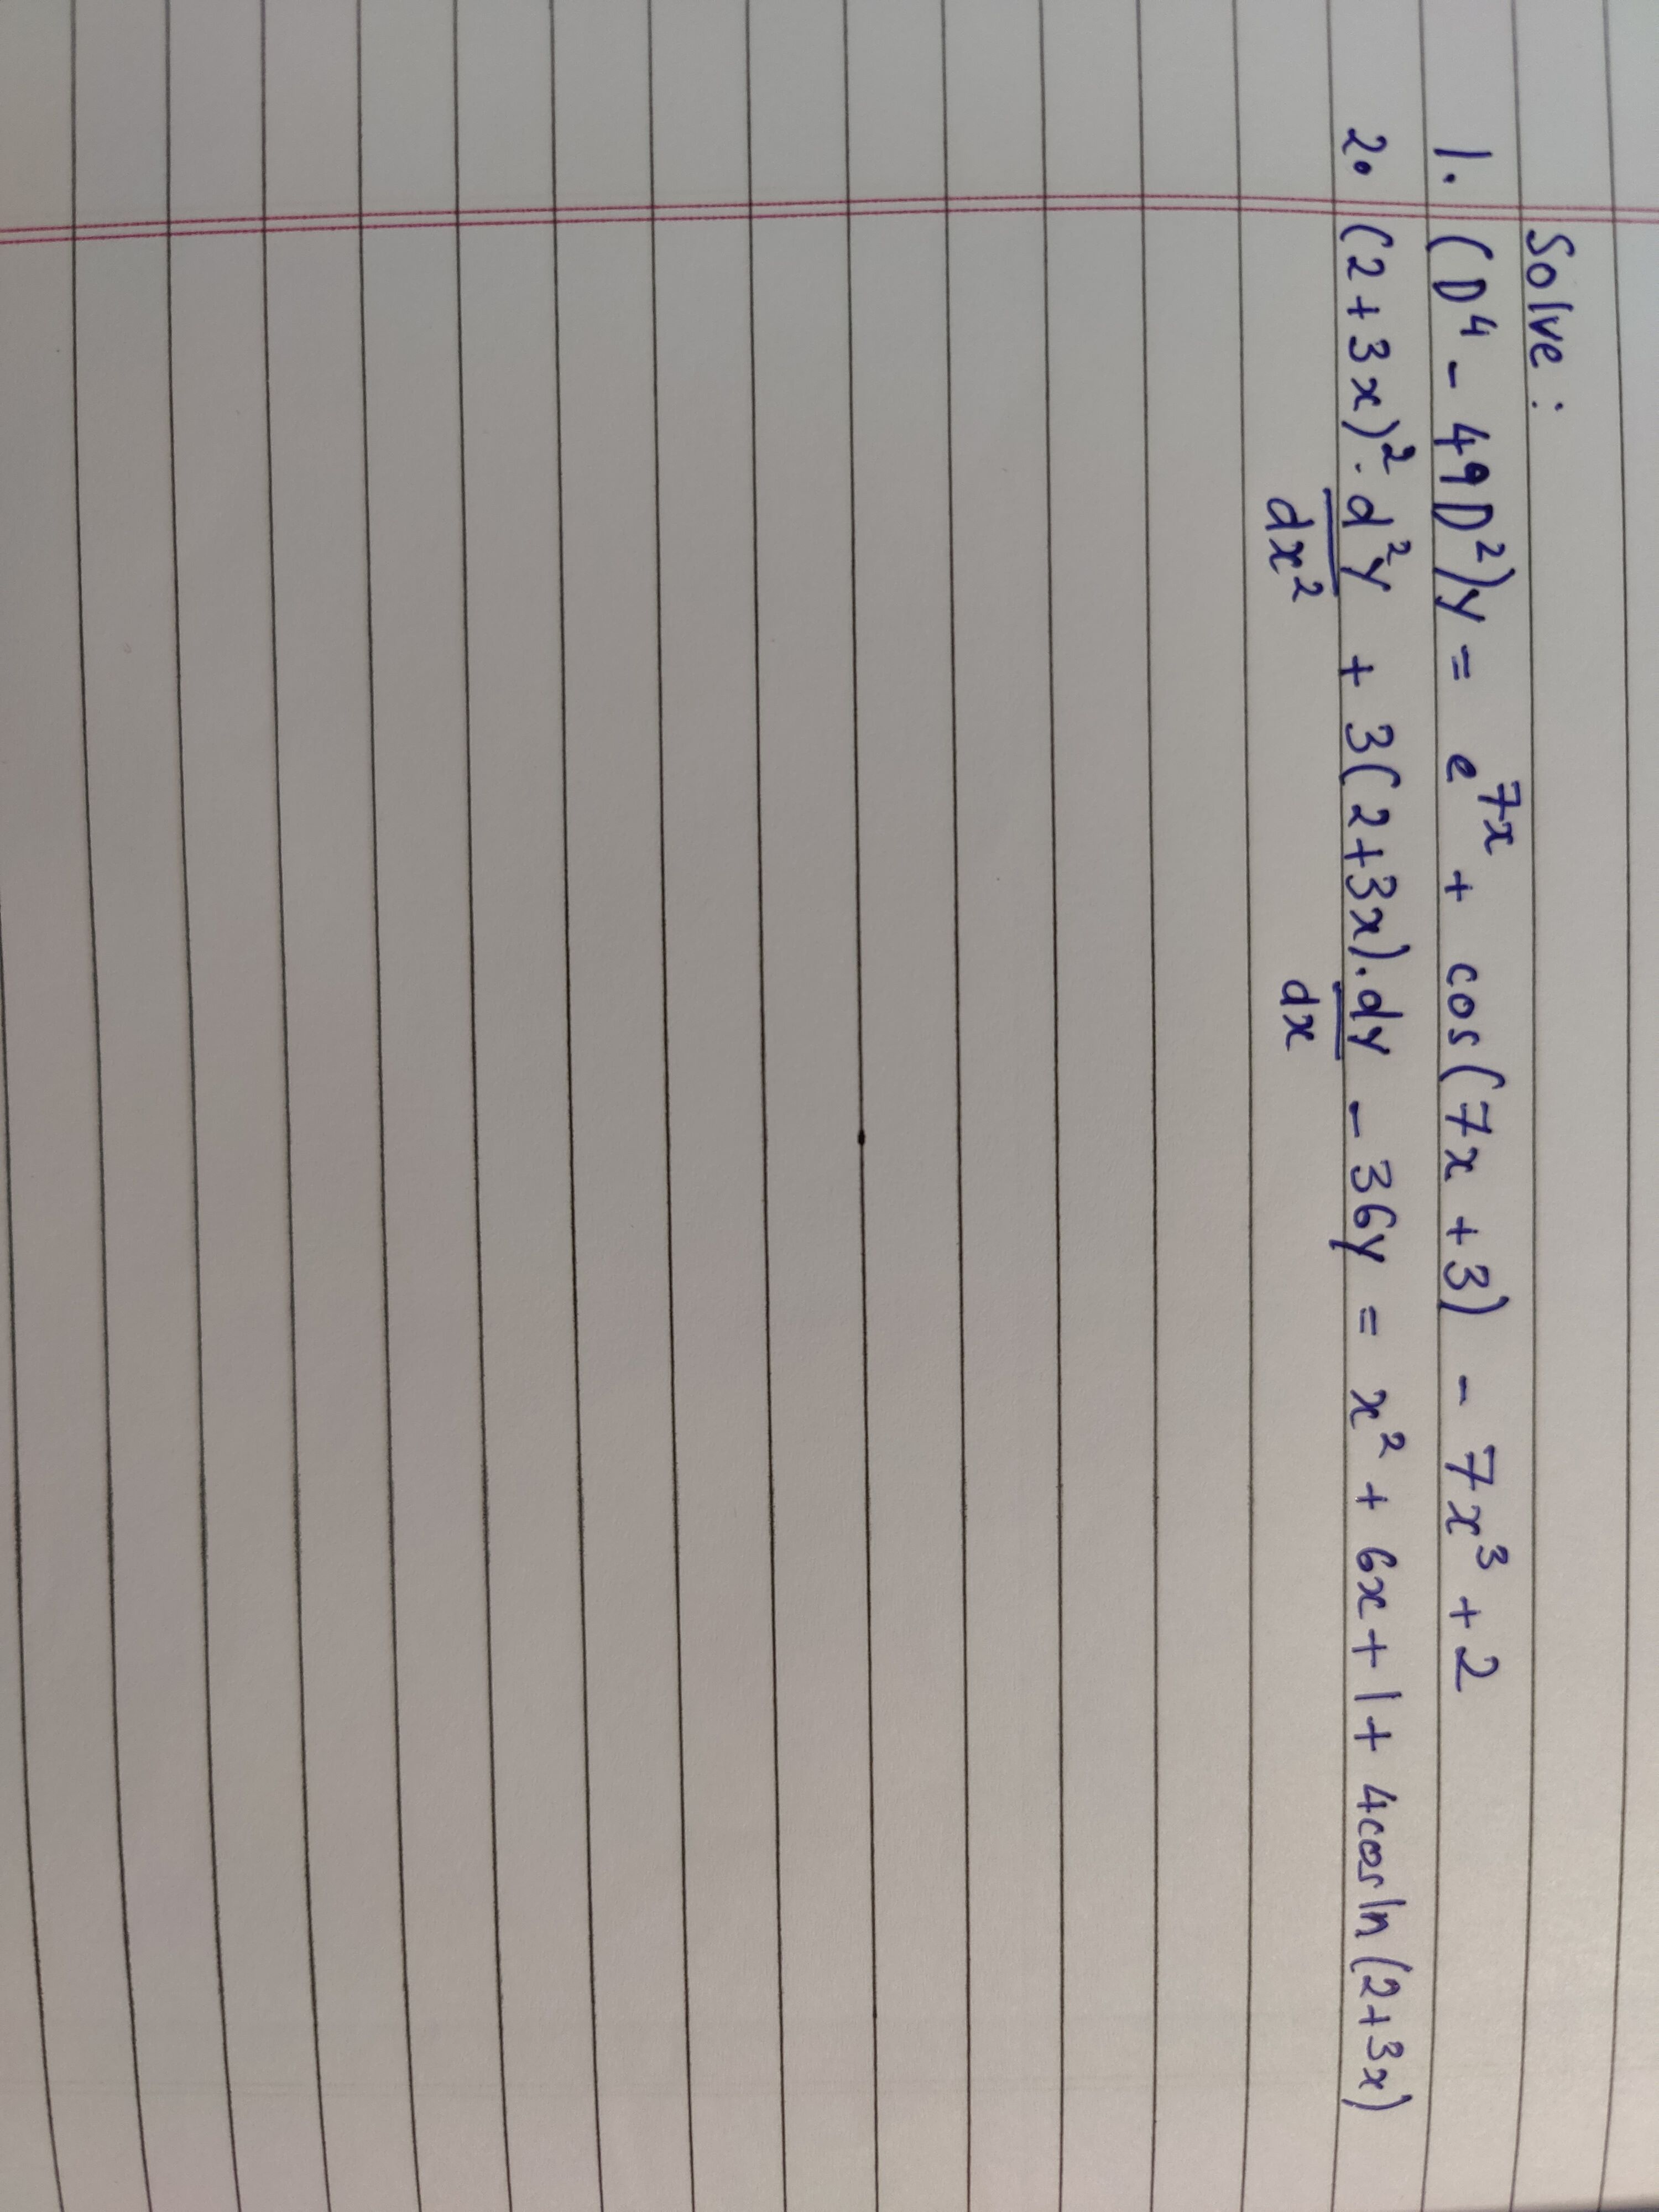 Solve :
1. (D⁴ - 49D²)y = e^{7x} + cos(7x + 3) - 7x³ + 2
2. (2+3x)² · d²y/dx² + 3(2+3x) · dy/dx - 36y = x² + 6x + 1 + 4cos ln (2+3x)